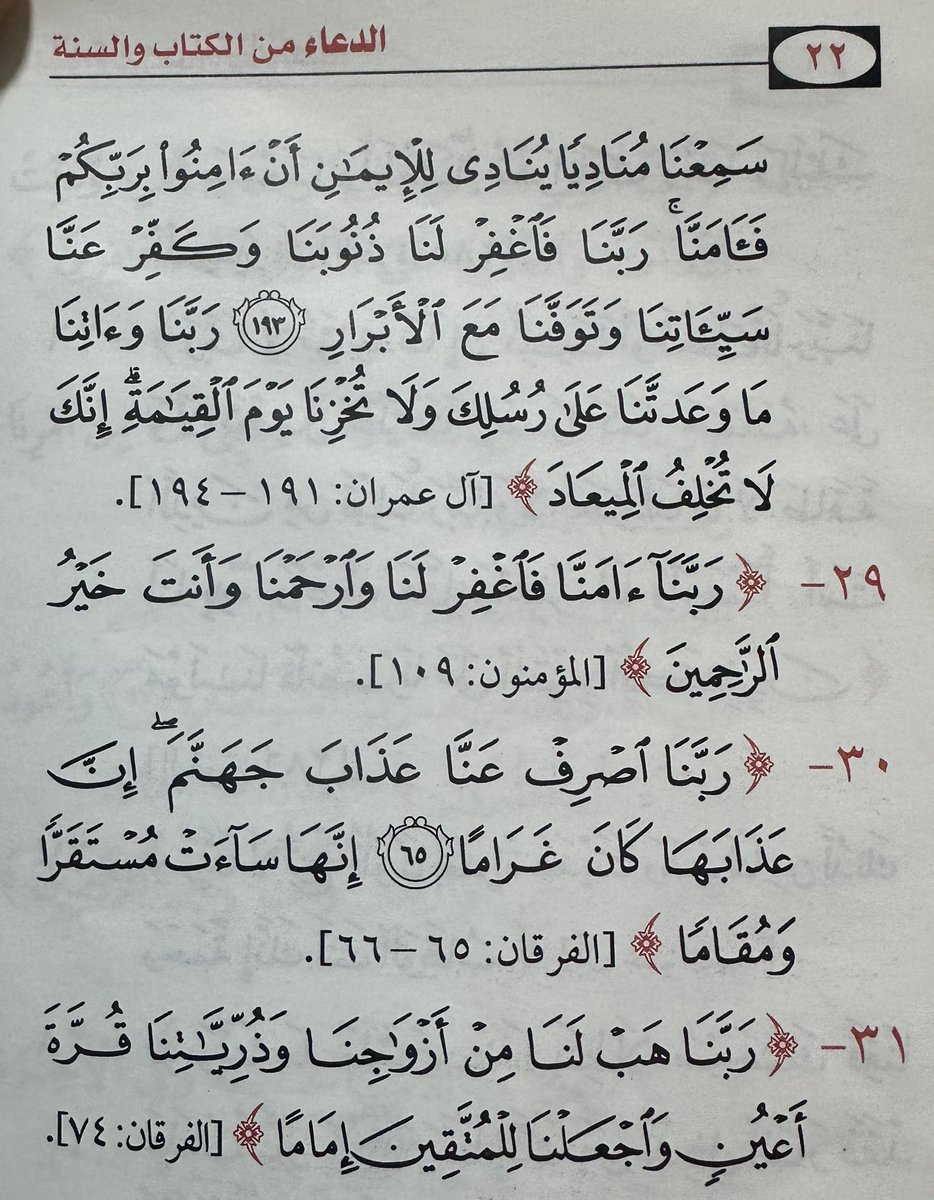 ٢٢ الدعاء من الكتاب والسنة
سَمِعْنَا مُنَادِيًا يُنَادِى لِلْإِيمَـٰنِ أَنْ ءَامِنُوا۟ بِرَبِّكُمْ
فَـَٔامَنَّا ۚ رَبَّنَا فَٱغْفِرْ لَنَا ذُنُوبَنَا وَكَفِّرْ عَنَّا
سَيِّـَٔاتِنَا وَتَوَفَّنَا مَعَ ٱلْأَبْرَارِ ١٩٣ رَبَّنَا وَءَاتِنَا
مَا وَعَدتَّنَا عَلَىٰ رُسُلِكَ وَلَا تُخْزِنَا يَوْمَ ٱلْقِيَـٰمَةِ ۗ إِنَّكَ
لَا تُخْلِفُ ٱلْمِيعَادَ ﴾ [آل عمران: ١٩١ – ١٩٤].
٢٩- ﴿ رَبَّنَآ ءَامَنَّا فَٱغْفِرْ لَنَا وَٱرْحَمْنَا وَأَنتَ خَيْرُ
ٱلرَّٰحِمِينَ ﴾ [المؤمنون: ١٠٩].
٣٠- ﴿ رَبَّنَا ٱصْرِفْ عَنَّا عَذَابَ جَهَنَّمَ ۖ إِنَّ
عَذَابَهَا كَانَ غَرَامًا ٦٥ إِنَّهَا سَآءَتْ مُسْتَقَرًّا
وَمُقَامًا ﴾ [الفرقان: ٦٥ – ٦٦].
٣١- ﴿ رَبَّنَا هَبْ لَنَا مِنْ أَزْوَٰجِنَا وَذُرِّيَّـٰتِنَا قُرَّةَ
أَعْيُنٍ وَٱجْعَلْنَا لِلْمُتَّقِينَ إِمَامًا ﴾ [الفرقان: ٧٤].